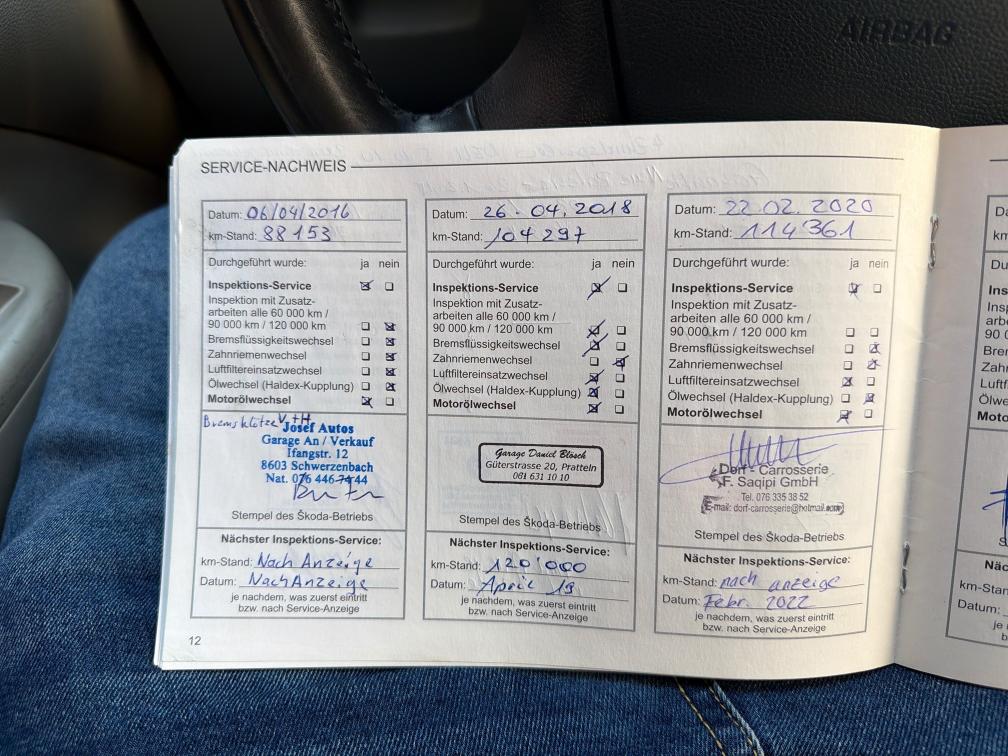 AIRBAG
SERVICE-NACHWEIS
Datum: 06/04/2016
km-Stand: 88153
Durchgeführt wurde: ja nein
Inspektions-Service
Inspektion mit Zusatz-
arbeiten alle 60 000 km /
90 000 km / 120 000 km
Bremsflüssigkeitswechsel
Zahnriemenwechsel
Luftfiltereinsatzwechsel
Ölwechsel (Haldex-Kupplung)
Motorölwechsel
Bremsklötze V+H
Josef Autos
Garage An / Verkauf
Ifangstr. 12
8603 Schwerzenbach
Nat. 076 446 74 44
Stempel des Škoda-Betriebs
Nächster Inspektions-Service:
km-Stand: Nach Anzeige
Datum: Nach Anzeige
je nachdem, was zuerst eintritt
bzw. nach Service-Anzeige
12
Datum: 26.04.2018
km-Stand: 104 297
Durchgeführt wurde: ja nein
Inspektions-Service
Inspektion mit Zusatz-
arbeiten alle 60 000 km /
90 000 km / 120 000 km
Bremsflüssigkeitswechsel
Zahnriemenwechsel
Luftfiltereinsatzwechsel
Ölwechsel (Haldex-Kupplung)
Motorölwechsel
Garage Daniel Blösch
Güterstrasse 20, Pratteln
061 631 10 10
Stempel des Škoda-Betriebs
Nächster Inspektions-Service:
km-Stand: 120'000
Datum: April 19
je nachdem, was zuerst eintritt
bzw. nach Service-Anzeige
Datum: 22.02.2020
km-Stand: 114'361
Durchgeführt wurde: ja nein
Inspektions-Service
Inspektion mit Zusatz-
arbeiten alle 60 000 km /
90 000 km / 120 000 km
Bremsflüssigkeitswechsel
Zahnriemenwechsel
Luftfiltereinsatzwechsel
Ölwechsel (Haldex-Kupplung)
Motorölwechsel
Dorf - Carrosserie
F. Saqipi GmbH
Tel. 076 335 38 52
E-mail: dorf-carrosserie@hotmail.com
Stempel des Škoda-Betriebs
Nächster Inspektions-Service:
km-Stand: nach anzeige
Datum: Febr. 2022
je nachdem, was zuerst eintritt
bzw. nach Service-Anzeige